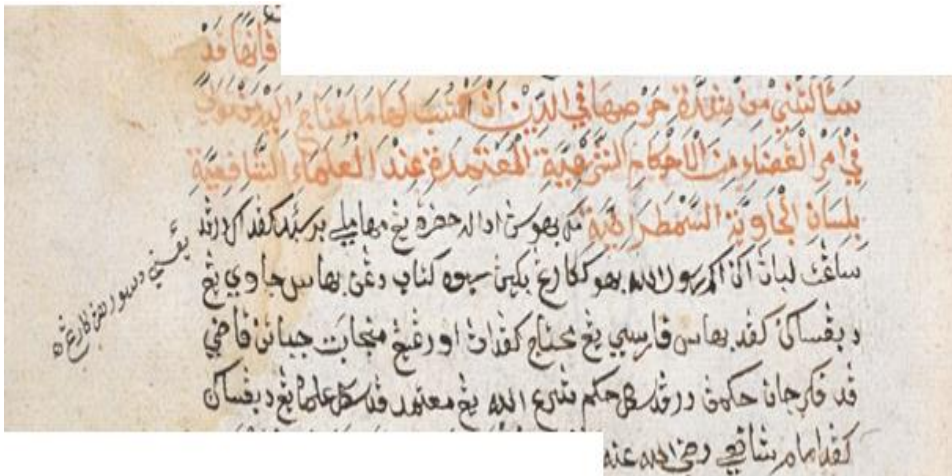 فَإِنَّهَا قَدْ
سَأَلَتْنِيْ مِنْ شِدَّةِ حِرْصِهَا فِي الدِّيْنِ اَنْ اَكْتُبَ لَهَا مَا يَحْتَاجُ اِلَيْهِ مَنْ يَتَوَلَّى
فِيْ اَمْرِ الْقَضَاءِ مِنَ الْاَحْكَامِ الشَّرْعِيَّةِ الْمُعْتَمَدَةِ عِنْدَ الْعُلَمَاءِ الشَّافِعِيَّةِ
بِلِسَانِ الْجَاوِيَّةِ السَّمْطَرَائِيَّةِ مك بهوسڽ اداله حضرة يڠ مها ملي برسبد كڤد اكو درڤد
ساڠت لباڽ اكن اكم رسول الله بهو كو كارڠ بڬين سبوه كتاب دڠن بهاس جاوي يڠ
دبڠساكن كڤد بهاس ڤاسي يڠ محتاج كڤداڽ اورڠ يڠ منجابت جباتن قاضي
ڤد ڤكرجاءن حكمڽ درڤد سكل حكم شرع الله يڠ معتمد ڤد سكل علماء يڠ دبڠساكن
كڤد امام شافعي رضي الله عنه